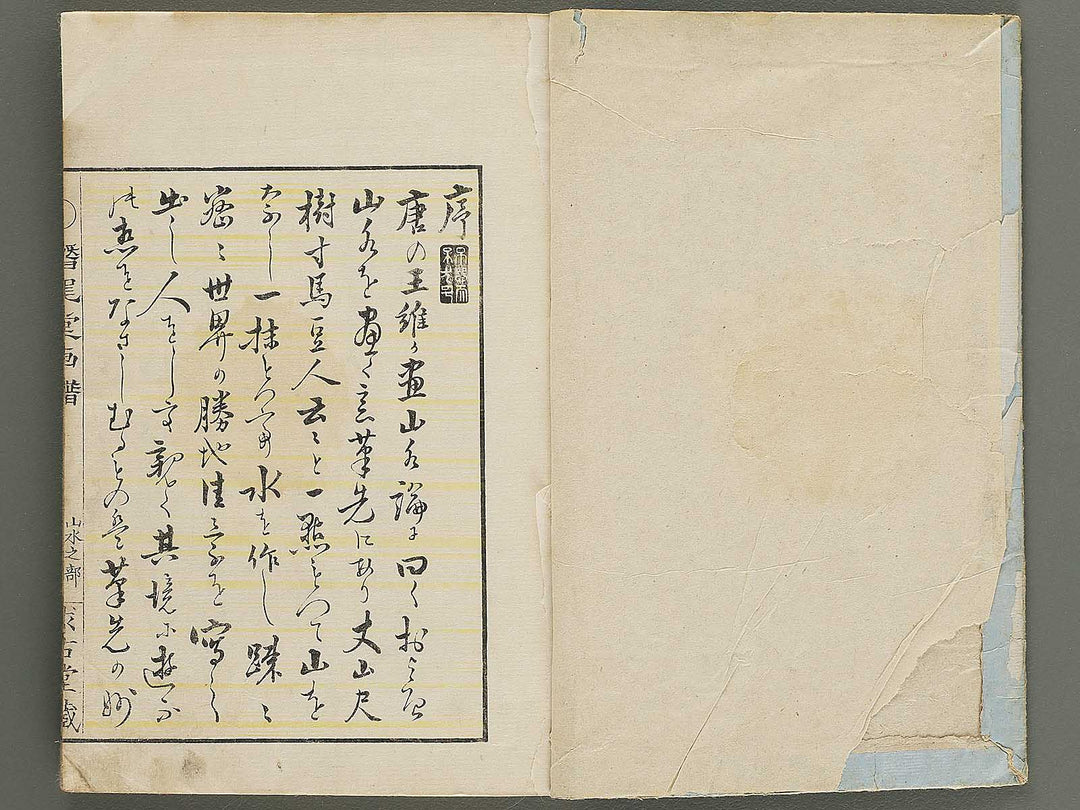 序
唐の王維か畫山水論に曰くおよそ
山水を畫く意筆先にあり丈山尺
樹寸馬豆人云々と一點をもつて山を
なし一抹をつて水を作し踈々
密々世界の勝地佳景を写し
出し人をして親く其境に遊ふ
思をなさしむるもの筆先の妙
山水之部